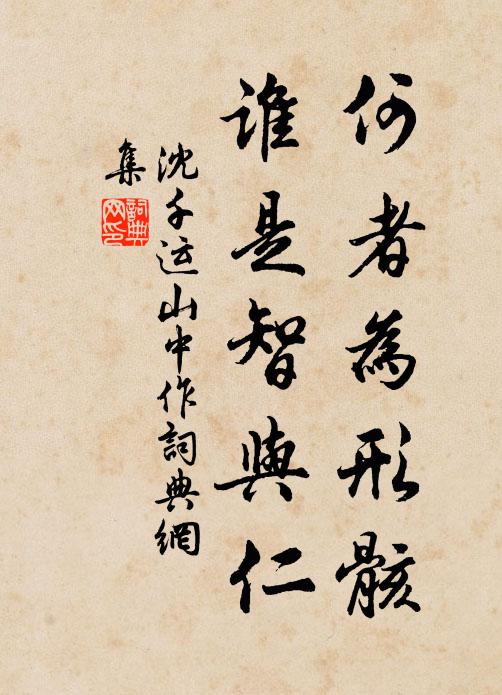 何者為形骸
誰是智與仁
沈千运山中作詞典網
集
詞典网印